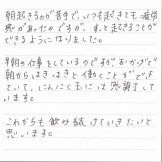 朝起きるのが苦手で、いつも起きても疲労
感があったのですが、すっと起きることが
できるようになりました。
早朝の仕事をしているのですが、おかげで
朝からはきはきと働くことができ
ていて、にんにく玉には感謝してい
ます。
これからも飲み続けていきたいと
思います。